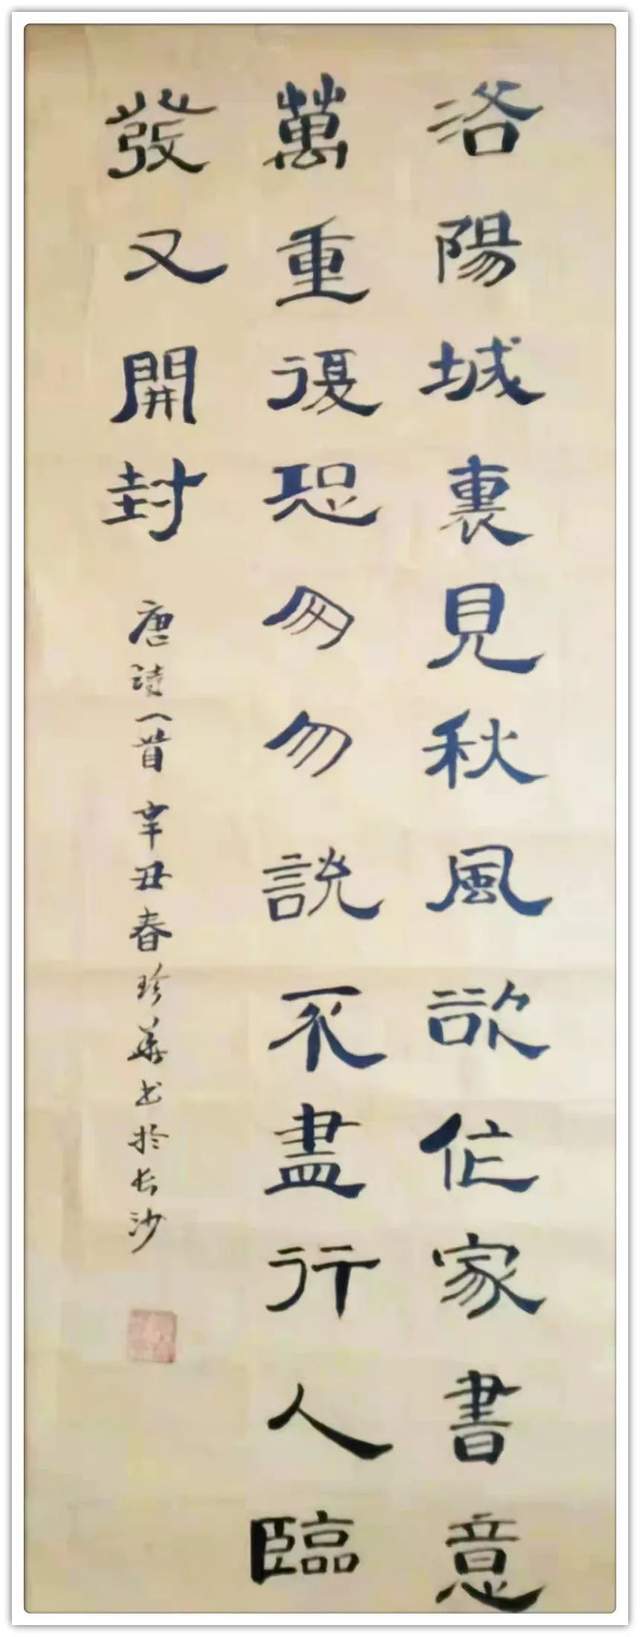 洛陽城裏見秋風欲作家書意
萬重復恐匆勿說不盡行人臨
發又開封
唐诗一首 辛丑春珍華书於长沙